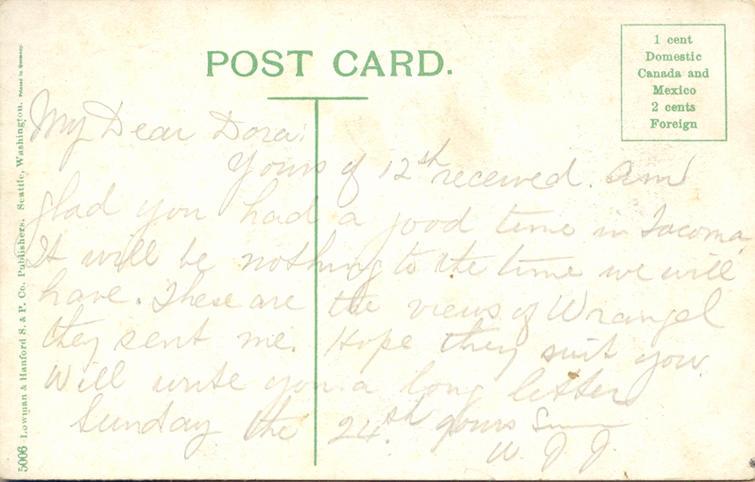 POST CARD.
1 cent
Domestic
Canada and
Mexico
2 cents
Foreign
5006 Lowman & Hanford S. & P. Co. Publishers. Seattle, Washington. Printed in Germany.
My Dear Dora:
Yours of 12th received. Am
glad you had a good time in Tacoma.
It will be nothing to the time we will
have. These are the views of Wrangel
they sent me. Hope they suit you.
Will write you a long letter
Sunday the 24th. Yours
W. J. J.